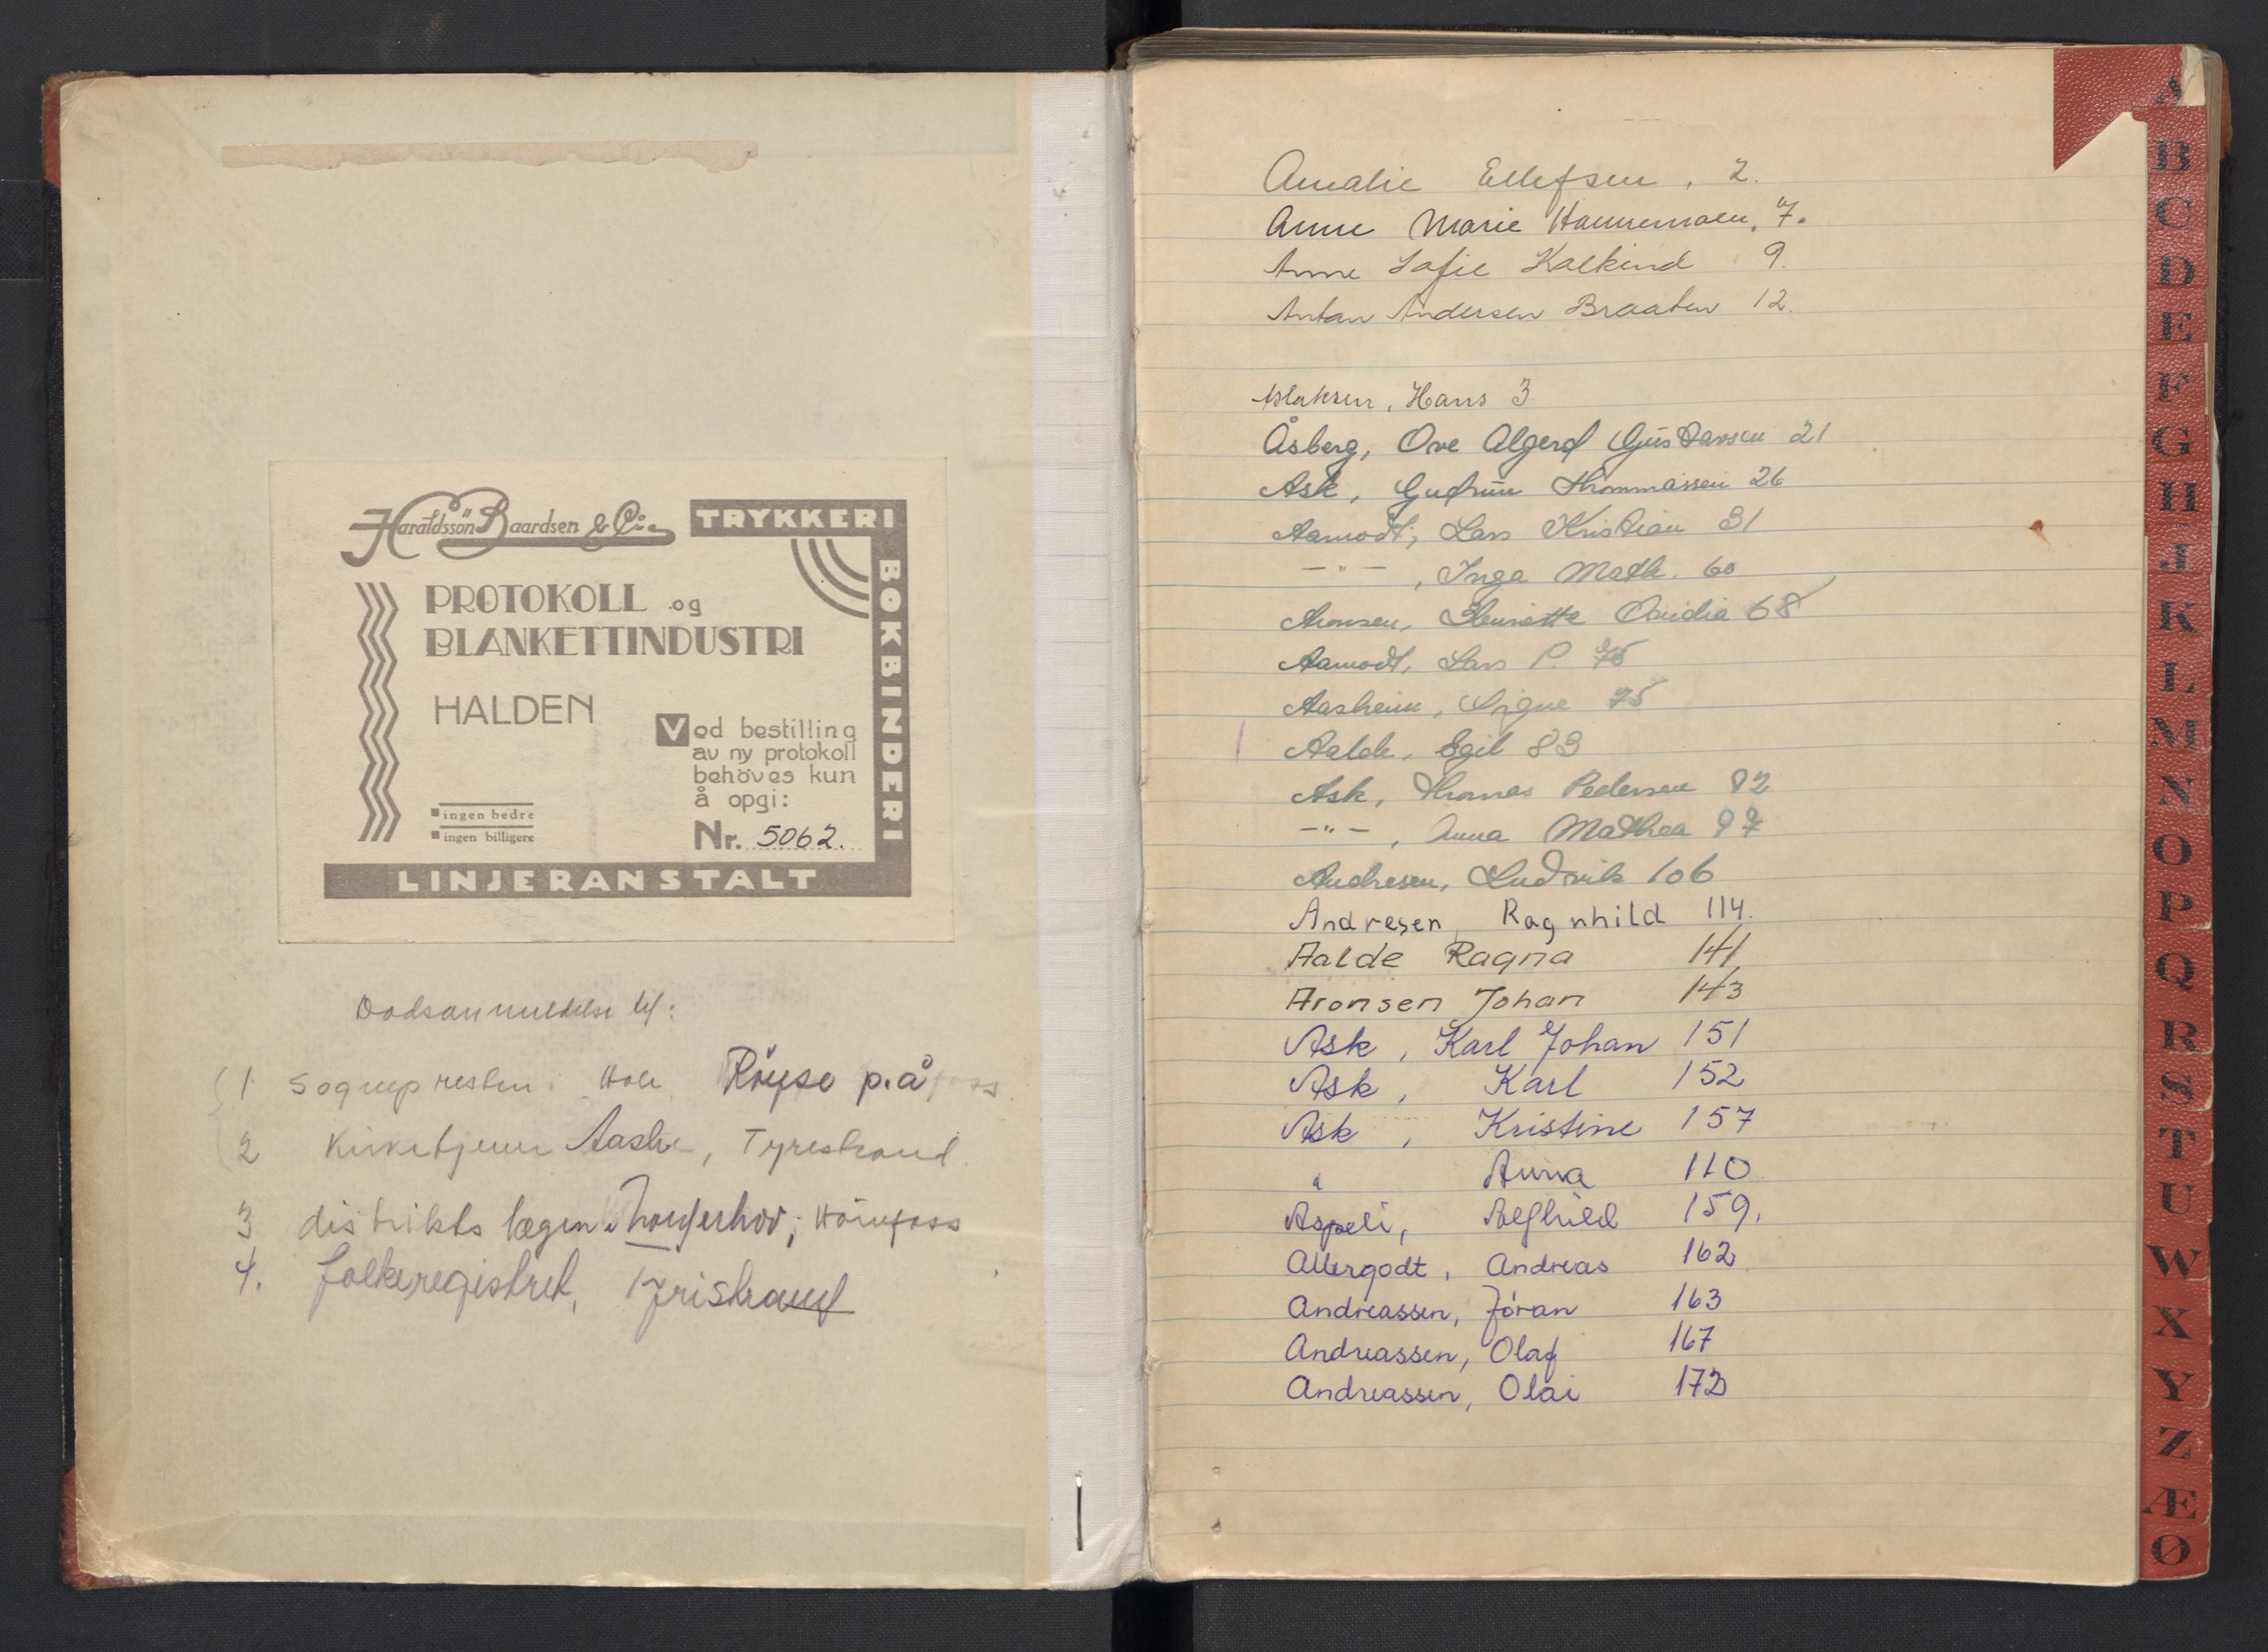 Haraldssön Baardsen & Co
TRYKKERI
BOKBINDERI
PROTOKOLL og
BLANKETTINDUSTRI
HALDEN
Ved bestilling
av ny protokoll
behöves kun
å opgi:
Nr. 5062.
ingen bedre
ingen billigere
LINJERANSTALT
Dødsanmeldelse til:
1 Sognepresten: Hole Röyse p.å
2 Kirketjener Aaske, Tyrestrand.
3 distriktslægen Norderhov, Hönefoss
4. folkeregistret, Tyristrand
Amalie Ellefsen, 2.
Anne Marie Hannemoen, 7.
Anne Sofie 9.
Anton Andersen Braaten 12.
Aslaksen, Hans 3
Åsberg, Ove Algerd Gustavsen 21
Ask, Gudrun Thommassen 26
Aamodt, Lars Kristian 31
-"-, Inga Math. 60
Aronsen, Henriette 68
Aamodt, Lars P. 75
Aasheim, Signe 75
Aalde, Egil 83
Ask, Thomas Pedersen 92
-"-, Anna Mathea 97
Andresen, Ludvik 106
Andresen, Ragnhild 114.
Aalde Ragna 141
Aronsen Johan 143
Ask, Karl Johan 151
Ask, Karl 152
Ask, Kristine 157
" Anna 110
Aspeli, Alfhild 159.
Allergodt, Andreas 162.
Andreassen, Jöran 163
Andreassen, Olaf 167
Andreassen, Olai 172
A
B
C
D
E
F
G
H
I
J
K
L
M
N
O
P
Q
R
S
T
U
W
X
Y
Z
Æ
Ø